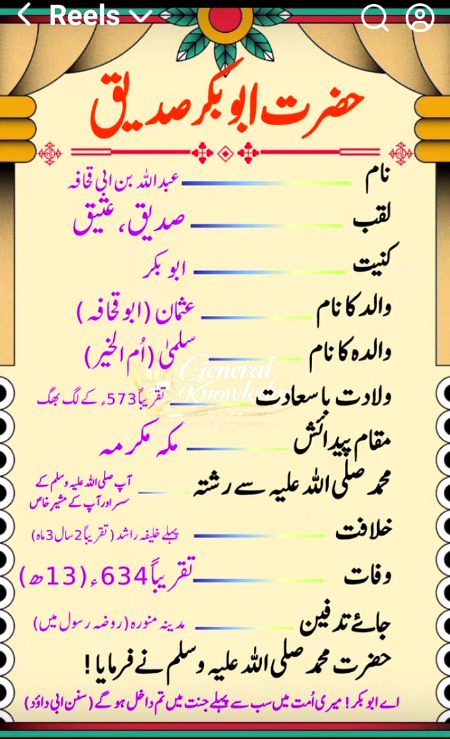 Reels
حضرت ابوبکر صدیق
نام عبداللہ بن ابی قحافہ
لقب صدیق، عتیق
کنیت ابو بکر
والد کا نام عثمان (ابو قحافہ)
والدہ کا نام سلمیٰ (اُم الخیر)
General Knowledge
ولادت باسعادت تقریباً 573ء کے لگ بھگ
مقام پیدائش مکہ مکرمہ
محمد صلی اللہ علیہ سے رشتہ آپ صلی اللہ علیہ وسلم کے سسر اور آپ کے مشیر خاص
خلافت پہلے خلیفہ راشد (تقریباً 2 سال 3 ماہ)
وفات تقریباً 634ء (13ھ)
جائے تدفین مدینہ منورہ (روضہ رسول میں)
حضرت محمد صلی اللہ علیہ وسلم نے فرمایا!
اے ابوبکر! میری اُمت میں سب سے پہلے جنت میں تم داخل ہو گے (سنن ابی داؤد)